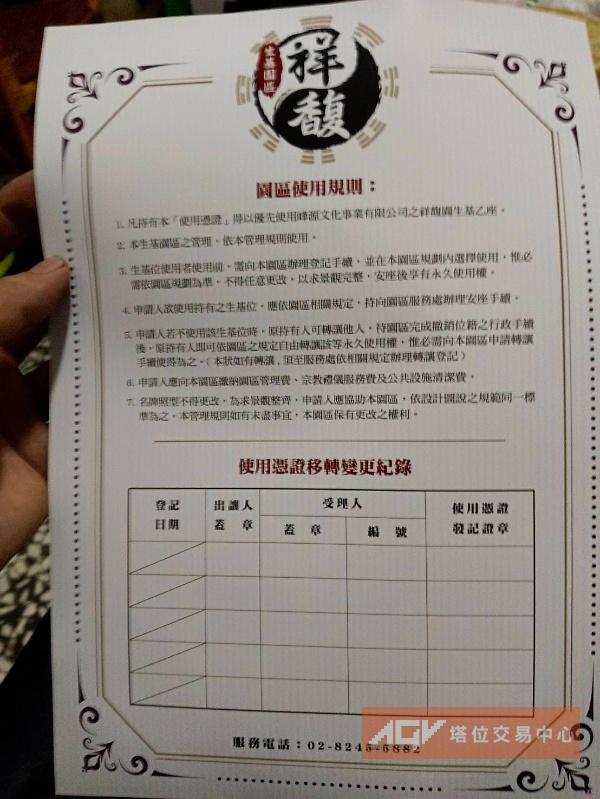 生基園區
祥馥
園區使用規則：
1. 凡持有本「使用憑證」得以優先使用峰源文化事業有限公司之祥馥園生基乙座。
2. 本生基園區之管理，依本管理規則使用。
3. 生基位使用者使用前，需向本園區辦理登記手續，並在本園區規劃內選擇使用，惟必
需依園區規劃為準，不得任意更改，以求景觀完整，安座後享有永久使用權。
4. 申請人欲使用持有之生基位，應依園區相關規定，持向園區服務處辦理安座手續。
5. 申請人若不使用該生基位時，原持有人可轉讓他人，待園區完成撤銷位籍之行政手續
後，原持有人即可依園區之規定自由轉讓該等永久使用權，惟必需向本園區申請轉讓
手續使得為之。(本狀如有轉讓，須至服務處依相關規定辦理轉讓登記)
6. 申請人應向本園區繳納園區管理費、宗教禮儀服務費及公共設施清潔費。
7. 名牌照型不得更改，為求景觀整齊，申請人應協助本園區，依設計圖說之規範同一標
準為之。本管理規則如有未盡事宜，本園區保有更改之權利。
使用憑證移轉變更紀錄
登記 出讓人 受理人 使用憑證
日期 蓋 章 蓋 章 編 號 發記證章
服務電話：02-8245-6882
AGV 塔位交易中心